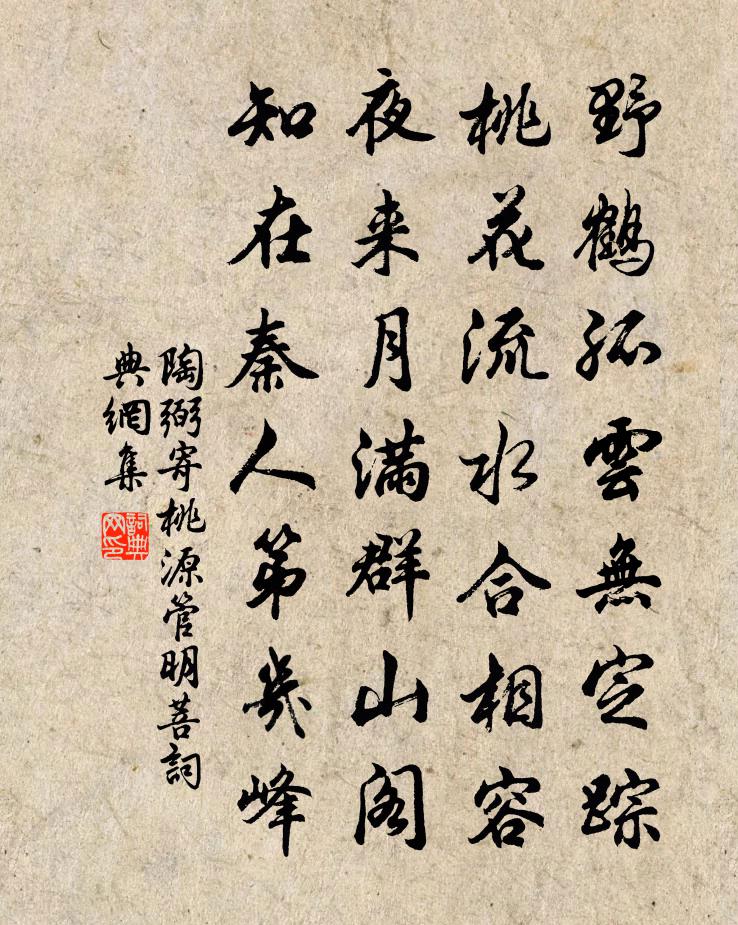 野鶴孤雲無定踪
桃花流水合相容
夜来月满群山阁
知在秦人第幾峰
陶弼寄桃源管明菩詞
典網集
詞典网印